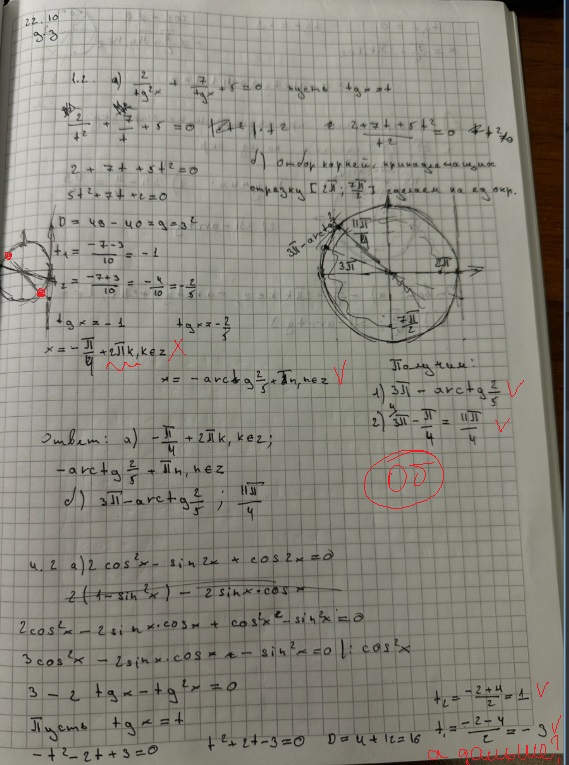 22.10
93
1.2. а) 2/tg²x + 7/tgx + 5 = 0 пусть tgx = t
2/t² + 7/t + 5 = 0 | · t² (2 + 7t + 5t²)/t² = 0
2 + 7t + 5t² = 0
б) Отбор корней, принадлежащих
5t² + 7t + 2 = 0
отрезку [2π; 7π/2] сделаем на ед окр.
D = 49 - 40 = 9 = 3²
t₁ = (-7-3)/10 = -1
t₂ = (-7+3)/10 = -4/10 = -2/5
3π - arctg 2/5
11π/4
3π
2π
7π/2
tgx = -1 tgx = -2/5
x = -π/4 + 2πk, k∈z
x = -arctg 2/5 + πn, n∈z
Получим:
1) 3π - arctg 2/5
2) 3π - π/4 = 11π/4
Ответ: а) -π/4 + 2πk, k∈z;
-arctg 2/5 + πn, n∈z
б) 3π - arctg 2/5 ; 11π/4
0δ
4.2 а) 2cos²x - sin2x + cos2x = 0
2(1-sin²x) - 2sinx·cosx
2cos²x - 2sinx·cosx + cos²x - sin²x = 0
3cos²x - 2sinx·cosx - sin²x = 0 | : cos²x
3 - 2tgx - tg²x = 0
Пусть tgx = t
-t² - 2t + 3 = 0 t² + 2t - 3 = 0 D = 4 + 12 = 16
t₂ = (-2+4)/2 = 1
t₁ = (-2-4)/2 = -3
а дальше?